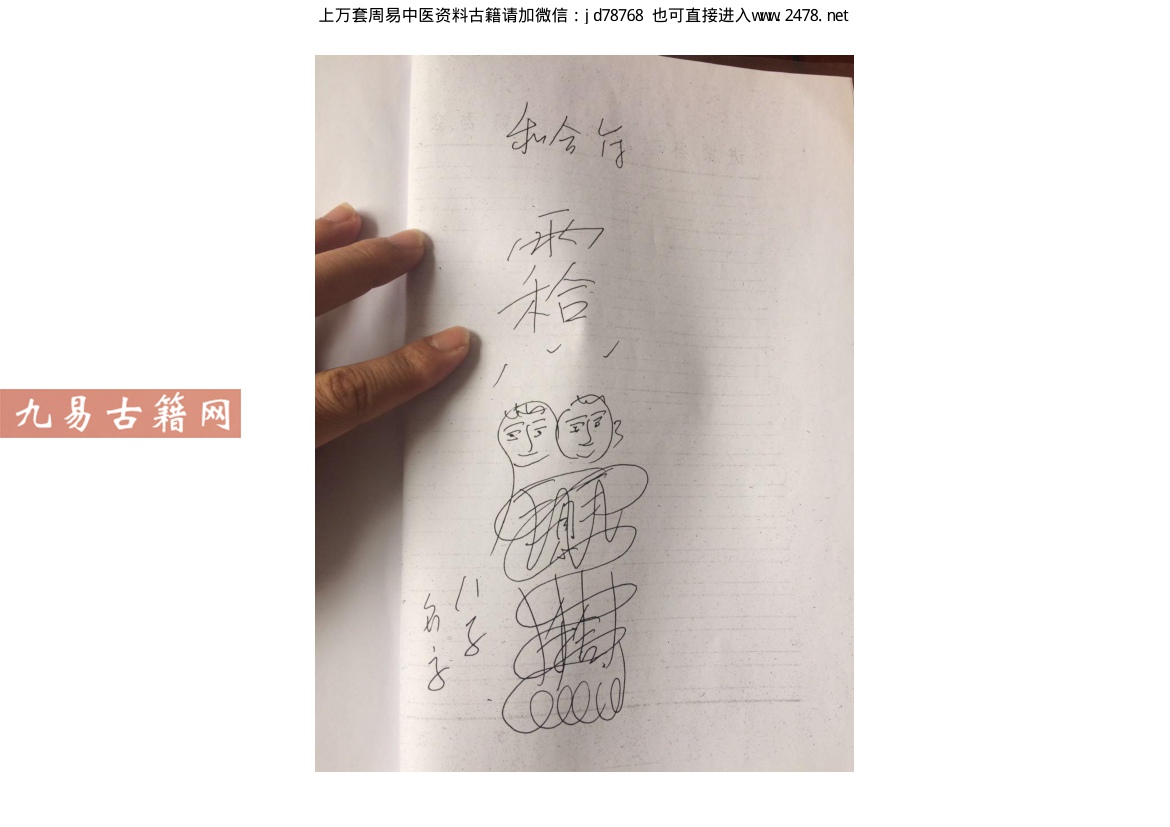 上万套周易中医资料古籍请加微信：jd78768 也可直接进入www.2478.net
和合符
雨
和合
九易古籍网
八字
名字